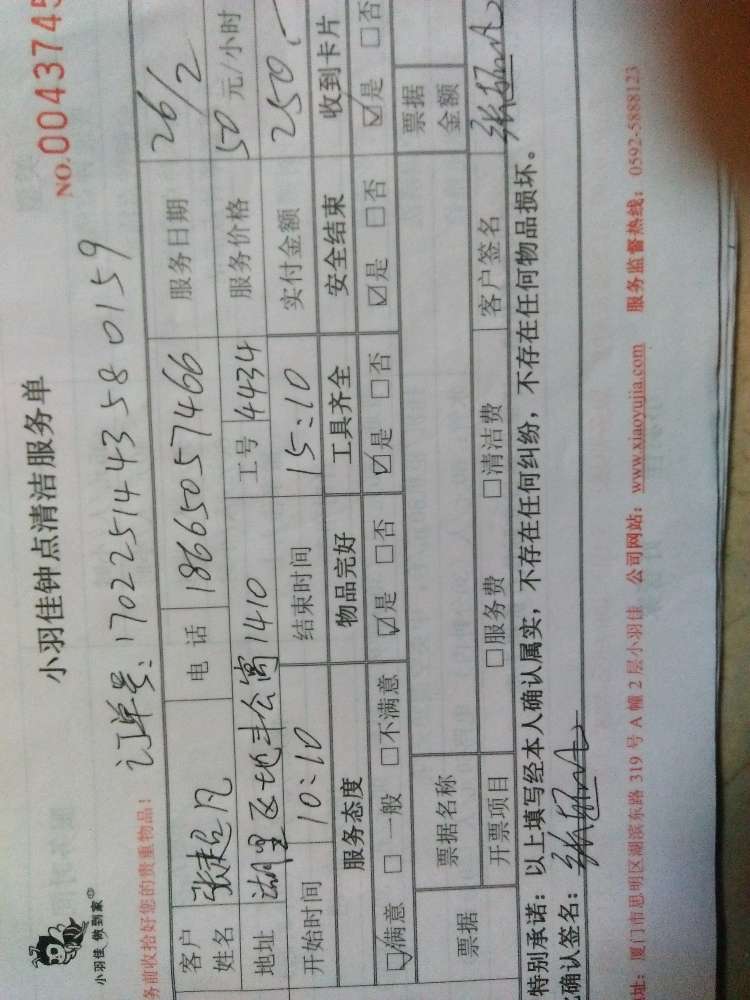 小羽佳钟点清洁服务单
NO.0043745
小羽佳 做到家
务前收拾好您的贵重物品！
订单号：170225144358 0159
客户姓名 张超凡 电话 18665057466 服务日期 26/2
地址 湖里区地丰公寓1410 工号 4434 服务价格 50 元/小时
开始时间 10:10 结束时间 15:10 实付金额 250.-
服务态度 物品完好 工具齐全 安全结束 收到卡片
☑满意 □一般 □不满意 ☑是 □否 ☑是 □否 ☑是 □否 ☑是 □否
票据 票据名称 票据金额
开票项目 □服务费 □清洁费 客户签名
特别承诺：以上填写经本人确认属实，不存在任何纠纷，不存在任何物品损坏。
确认签名：
址：厦门市思明区湖滨东路 319 号 A 幢 2 层小羽佳 公司网站：www.xiaoyujia.com 服务监督热线：0592-5888123